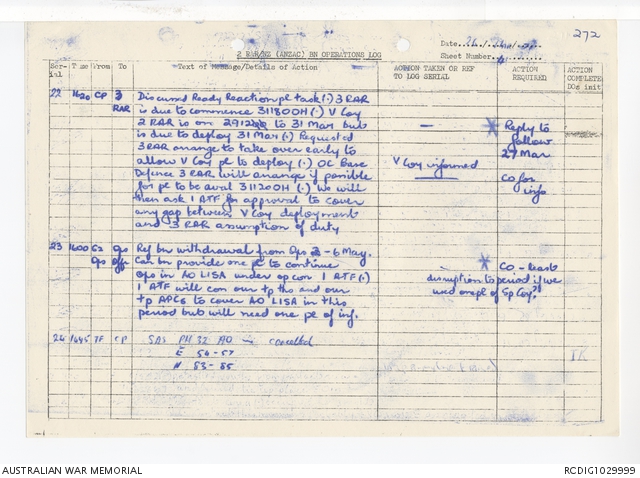 272
2 RAR/NZ (ANZAC) BN OPERATIONS LOG
Date
Sheet Number
Ser-ial Time From To Text of Message/Details of Action ACTION TAKEN OR REF TO LOG SERIAL ACTION REQUIRED ACTION COMPLETE DOs init
22 1420 CP 3 RAR Discussed Ready Reaction pl task (.) 3 RAR
is due to commence 311800H (.) V Coy
2 RAR is on to 31 Mar but
is due to deploy 31 Mar (.) Requested
3 RAR arrange to take over early to
allow V Coy pl to deploy (.) OC Base
Defence 3 RAR will arrange if possible
for pl to be avail 311200H (.) We will
then ask 1 ATF for approval to cover
any gap between V Coy deployment
and 3 RAR assumption of duty
—
V Coy informed
* Reply to
follow
27 Mar
CO for
info
23 1600 G2 Ops Ops Offr Ref bn withdrawal from Ops 2 - 6 May.
Can bn provide one pl to continue
ops in AO LISA under opcon 1 ATF (.)
1 ATF will con our tp ths and our
tp APCs to cover AO LISA in this
period but will need one pl of inf.
* CO - least
disruption to period if we
used one pl of Sp Coy?!
24 1645 TF CP SAS PH 32 AO is cancelled
E 54 - 57
N 83 - 85
AUSTRALIAN WAR MEMORIAL
RCDIG1029999